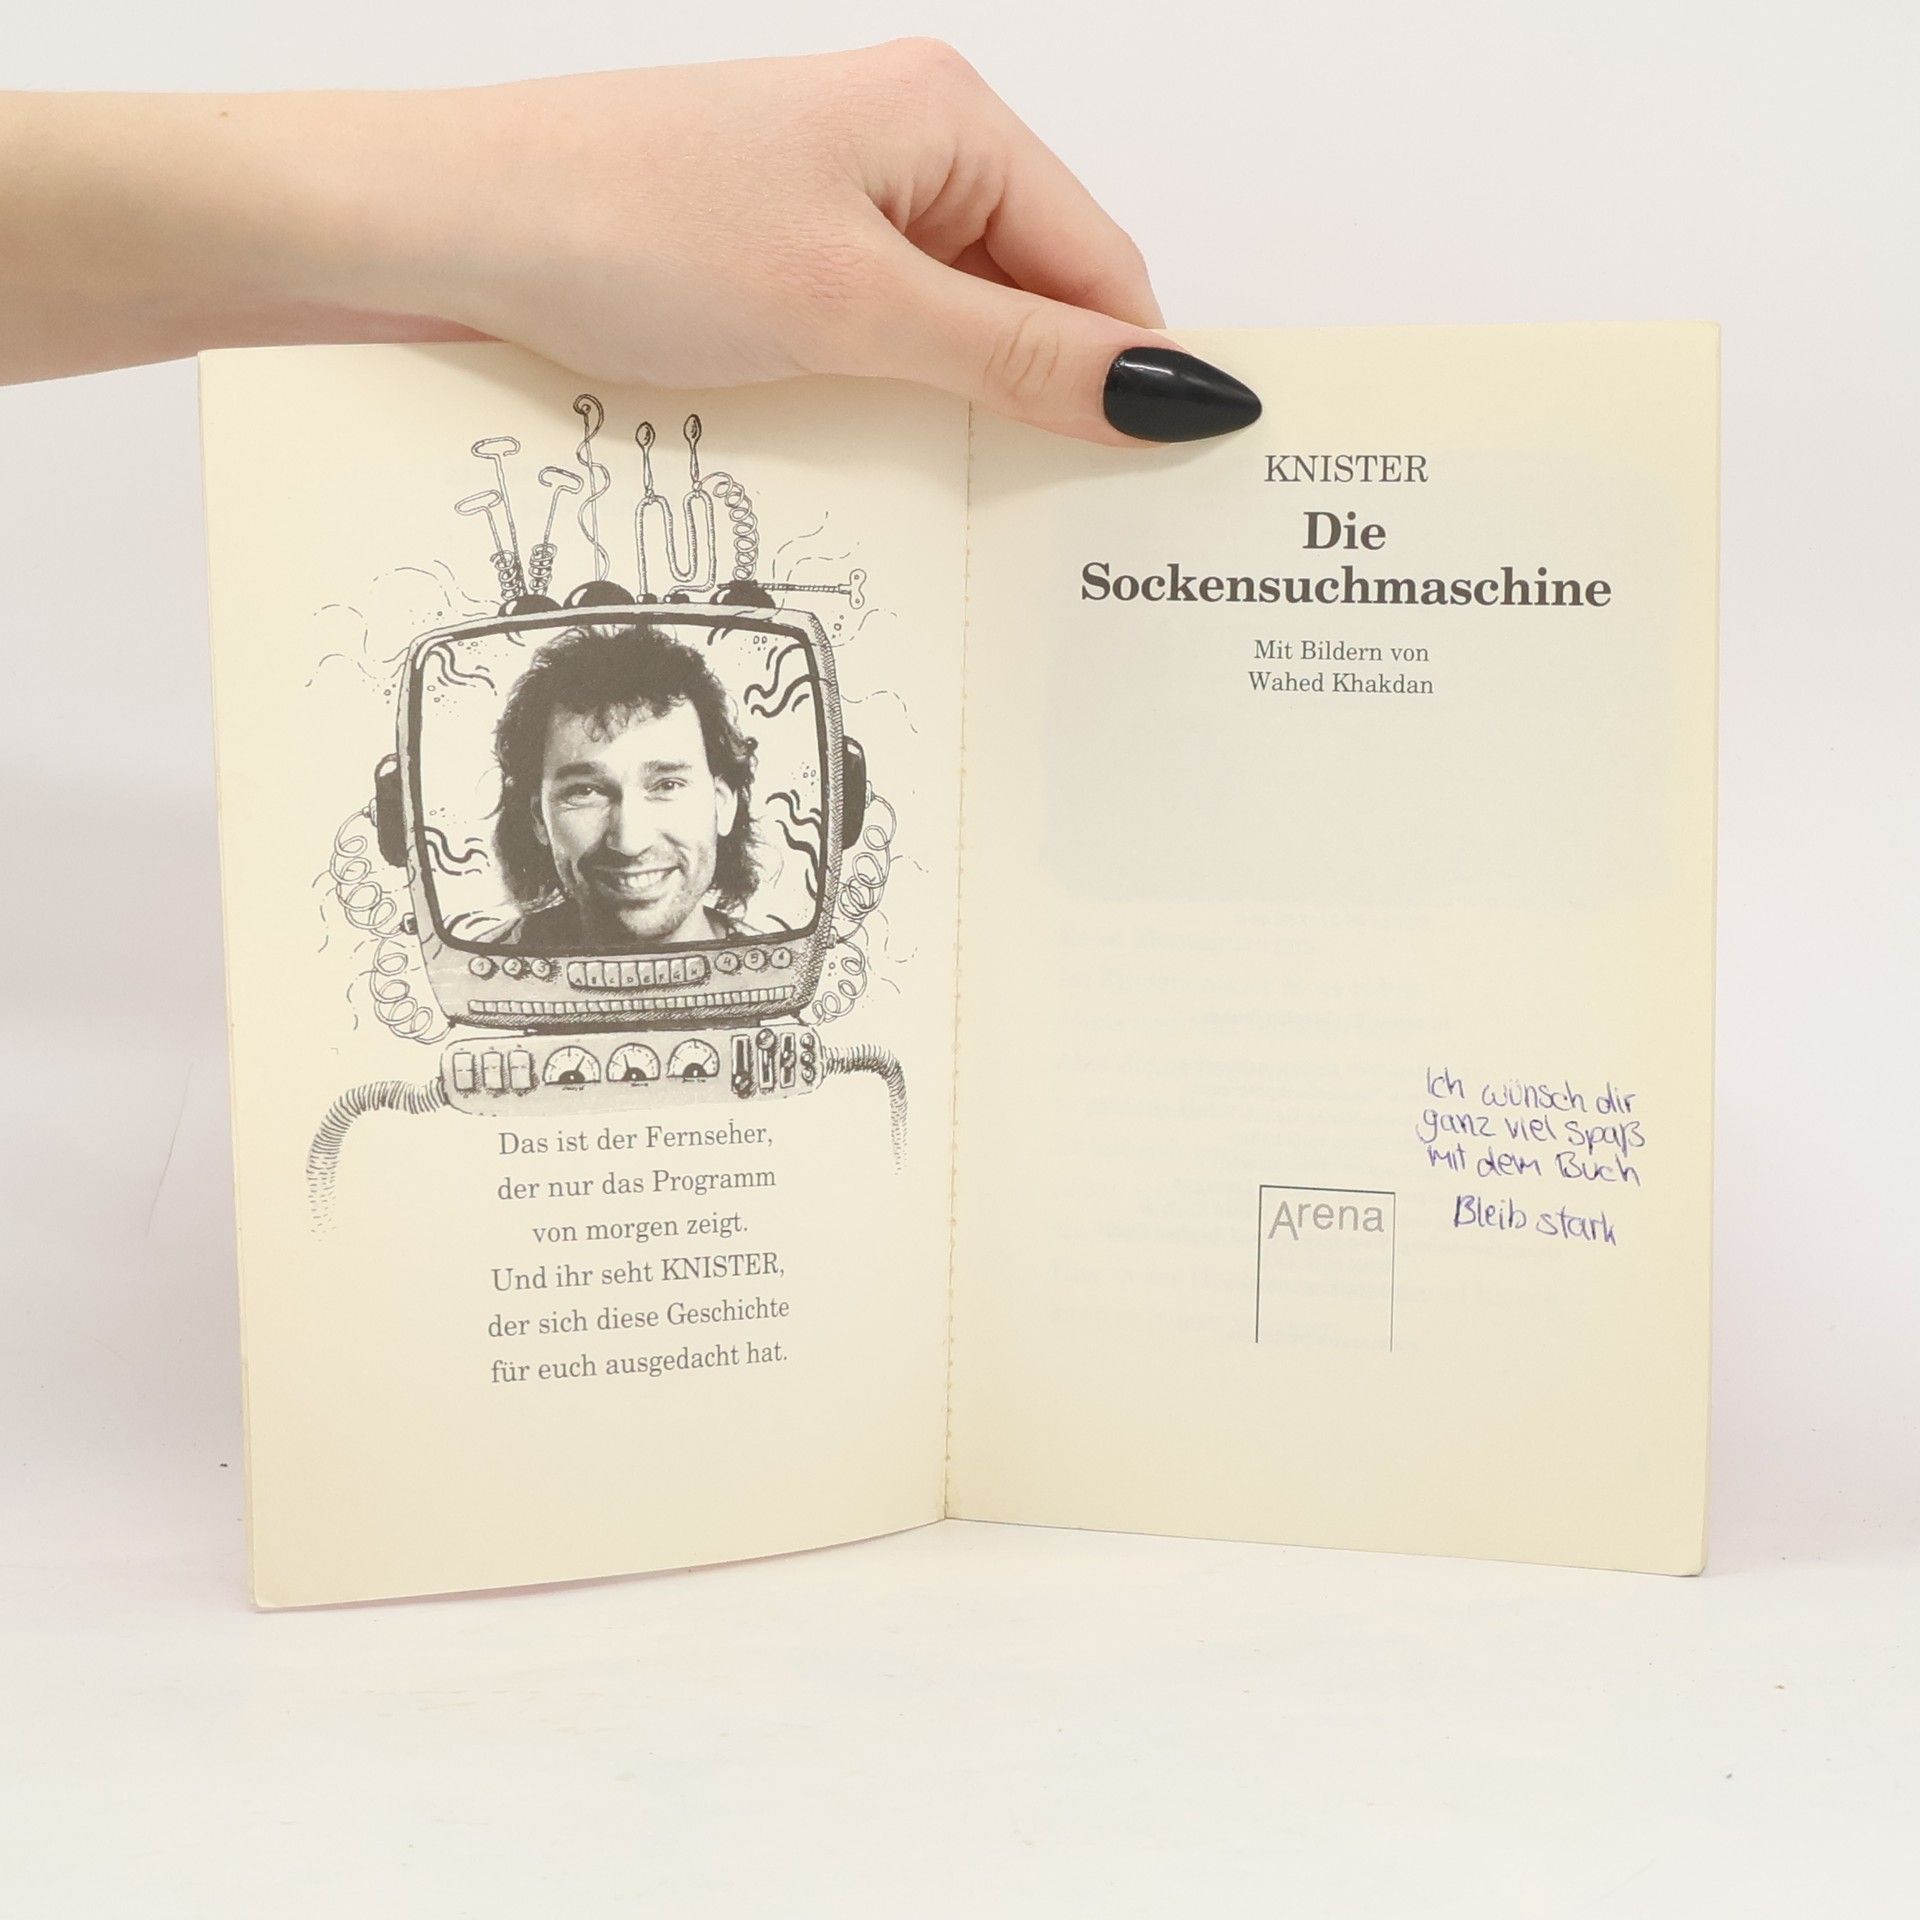 1 2 3 A B C D E F G H 4 5 6
Das ist der Fernseher,
der nur das Programm
von morgen zeigt.
Und ihr seht KNISTER,
der sich diese Geschichte
für euch ausgedacht hat.
KNISTER
Die
Sockensuchmaschine
Mit Bildern von
Wahed Khakdan
Ich wünsch dir
ganz viel Spaß
mit dem Buch
Bleib stark
Arena